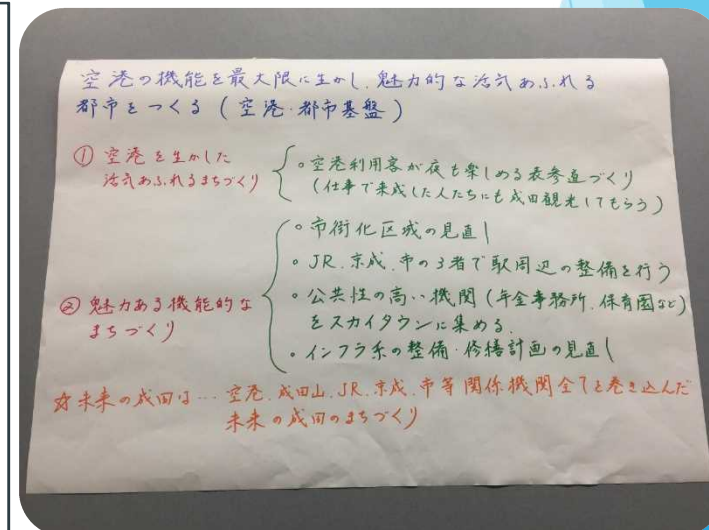 空港の機能を最大限に生かし、魅力的な活気あふれる
都市をつくる(空港・都市基盤)
① 空港を生かした
活気あふれるまちづくり
。空港利用客が夜も楽しめる表参道づくり
(仕事で来成した人たちにも成田観光してもらう)
② 魅力ある機能的な
まちづくり
。市街化区域の見直し
。JR、京成、市の3者で駅周辺の整備を行う
。公共性の高い機関(年金事務所、保育園など)
をスカイタウンに集める。
。インフラ系の整備・修繕計画の見直し
☆未来の成田は… 空港、成田山、JR、京成、市等関係機関全てを巻き込んだ
未来の成田のまちづくり